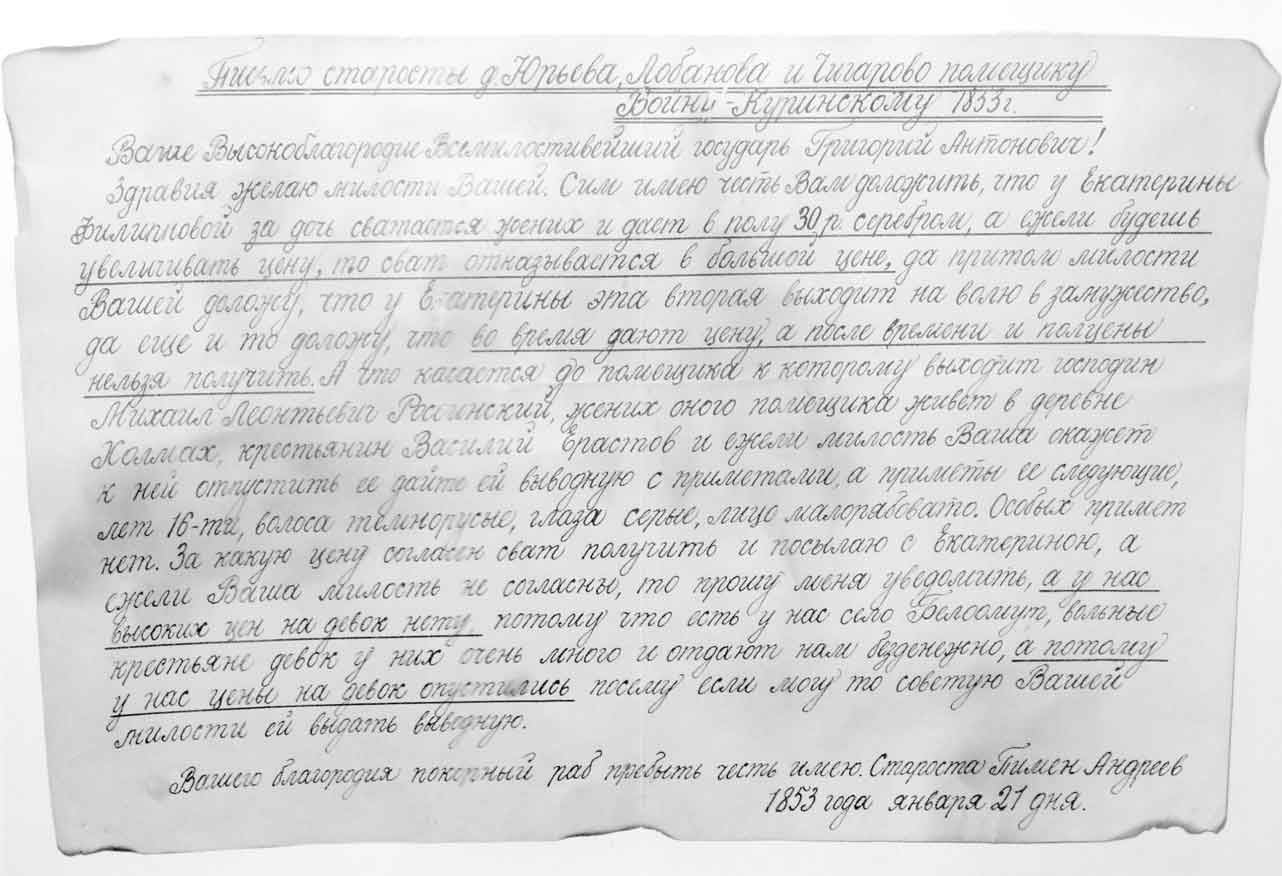 Письмо старосты д. Юрьева, Лобанова и Чигарово помещику
Войни-Куринскому 1853 г.
Ваше Высокоблагородие Всемилостивейший государь Григорий Антонович!
Здравия желаю милости Вашей. Сим имею честь Вам доложить, что у Екатерины
Филипповой за дочь сватается жених и дает в полу 30 р. серебром, а ежели будешь
увеличивать цену, то сват отказывается в большой цене, да притом милости
Вашей доложу, что у Екатерины эта вторая выходит на волю в замужество,
да еще и то доложу, что во время дают цену, а после времени и полцены
нельзя получить. А что касается до помещика к которому выходит господин
Михаил Леонтьевич Россинский, жених оного помещика живет в деревне
Холмах, крестьянин Василий Ерастов и ежели милость Ваша скажет
к ней отпустить ее дайте ей выводную с приметами, а приметы ее следующие,
лет 16-ти, волоса темнорусые, глаза серые, лицо малорябовато. Особых примет
нет. За какую цену согласен сват получить и посылаю с Екатериною, а
ежели Ваша милость не согласны, то прошу меня уведомить, а у нас
высоких цен на девок нету, потому что есть у нас село Белоомут, вольные
крестьяне девок у них очень много и отдают нам безденежно, а потому
у нас цены на девок опустились посему если могу то советую Вашей
милости ей выдать выводную.
Вашего благородия покорный раб пребыть честь имею. Староста Пимен Андреев
1853 года января 21 дня.